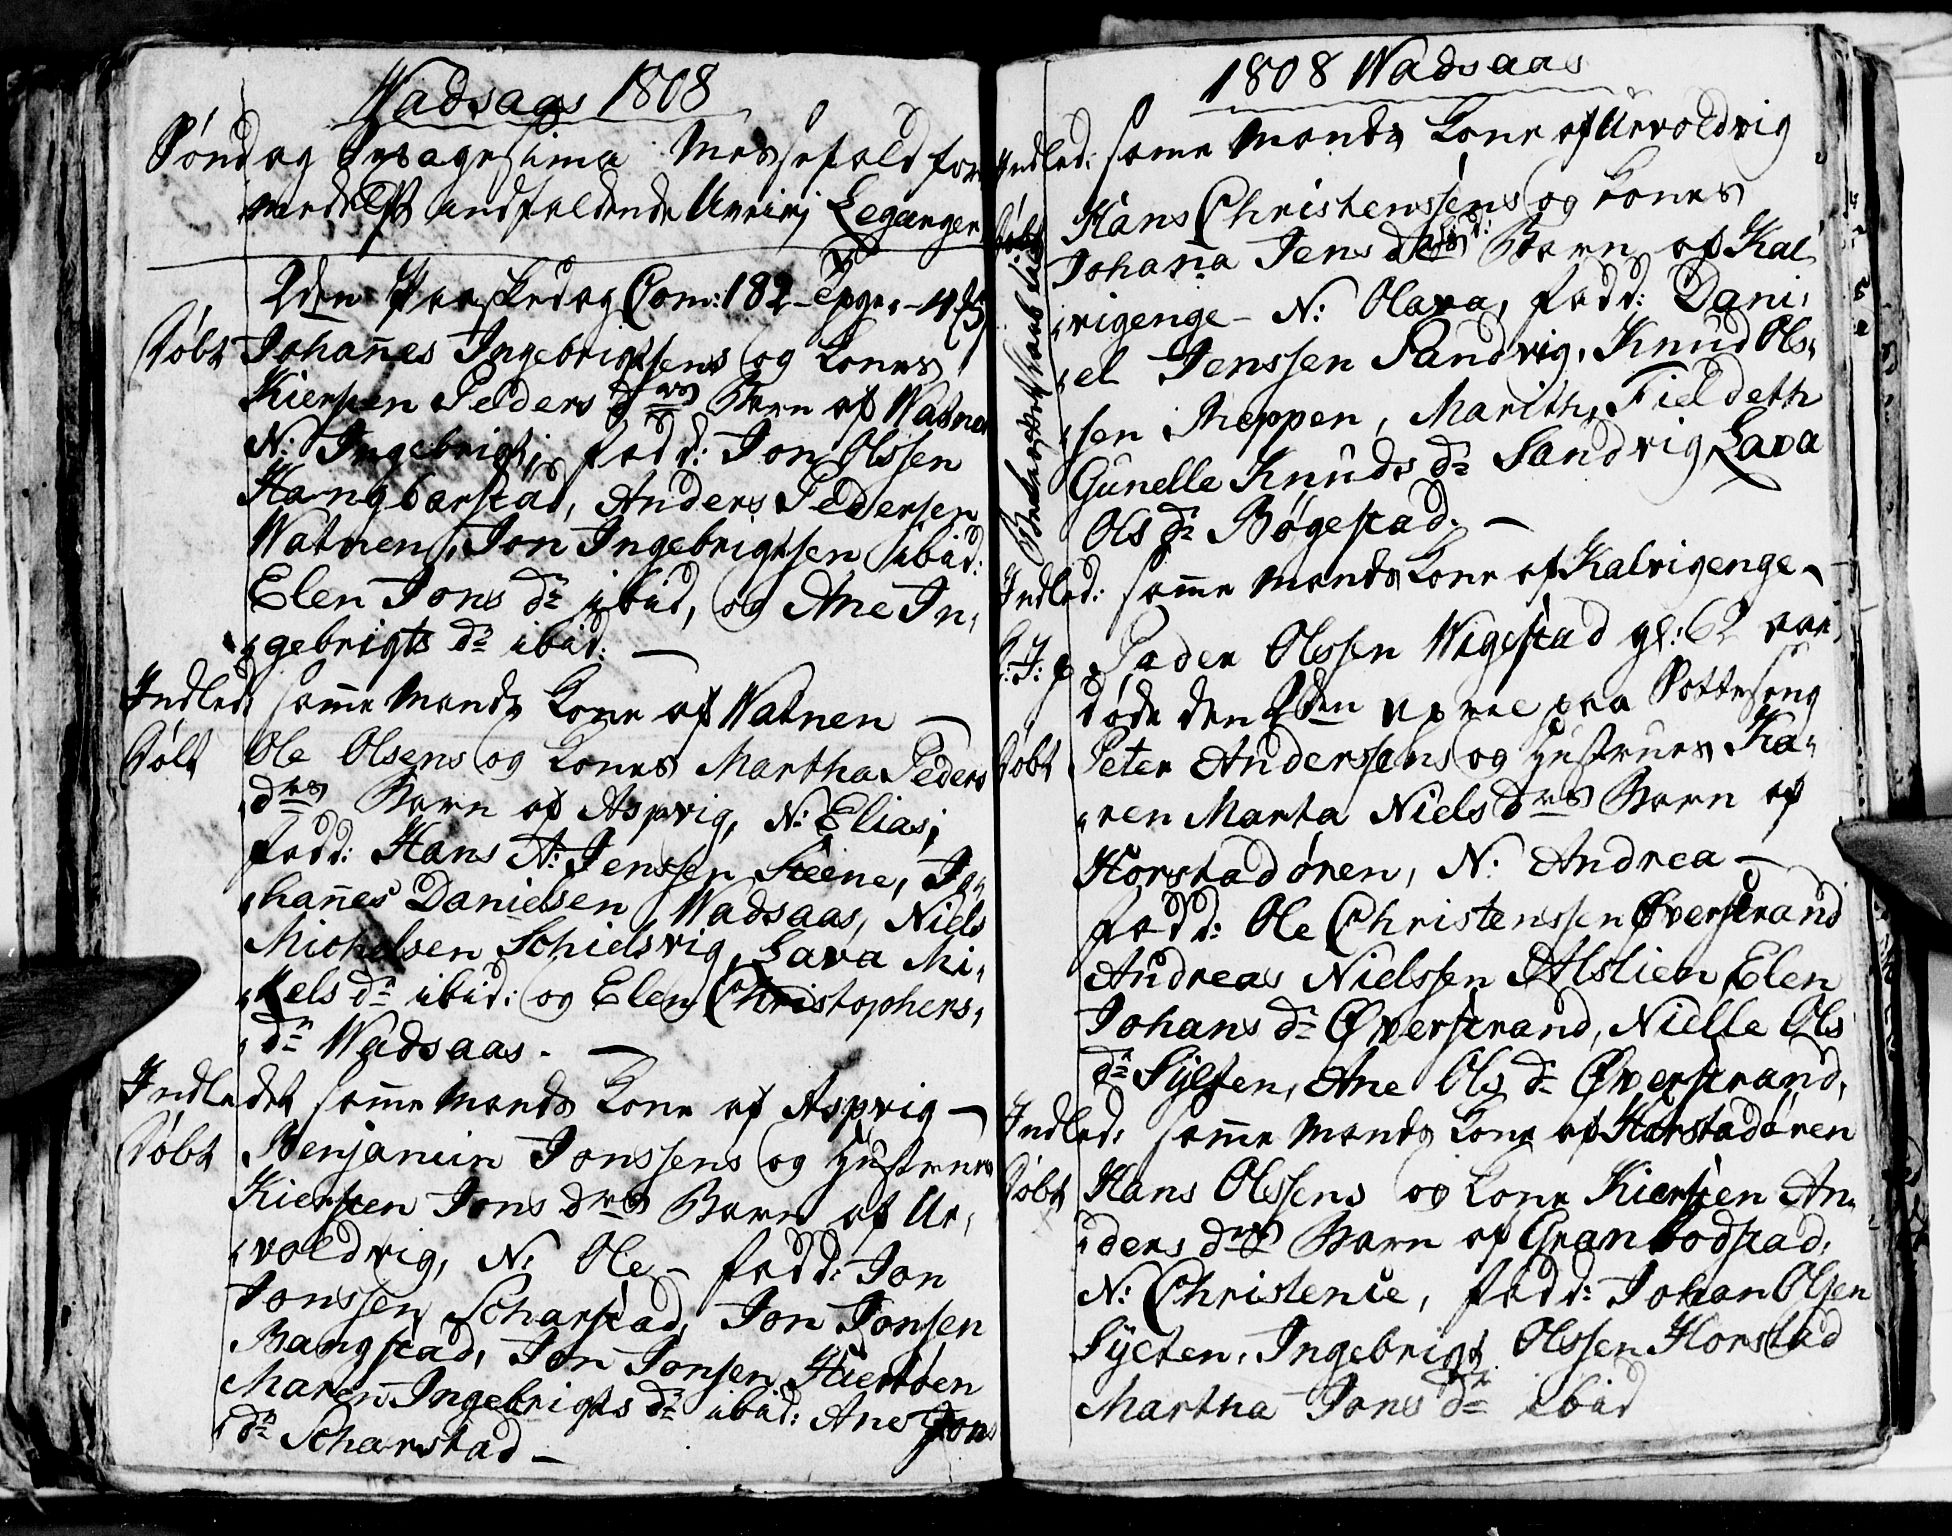 Wadsaas 1808
Søndag Sexagesima Messefald for
medelst andfaldende Uveirj
2den Paaskedag Com: 182
Døbt Johan̄es Ingebrigtsens og Kones
Kiersten Peders drs Barn af Watnen
N: Ingebrigt; Fadd: Jon Olssen
Hangbarstad, Anders Pedersen
Watnen, Jon Ingebrigtsen ibid:
Elen Jons dr ibid, og Ane In„
„gebrigts dr ibid: —
Indled: sam̄e Mands Kone af Watnen —
Døbt Ole Olsens og Kones Martha Peders
drs Barn af Aspvig, N: Elias;
Fadd: Hans A: Jenssen Steene, Jo„
„han̄es Danielsen, Wadsaas, Niels
Michelsen Schielsvig, Lava Mi„
„kels dr ibid: og Elen Christophers„
„dr Wadsaas. —
Indledet sam̄e Mands Kone af Aspvig —
Døbt Benjamin Jonssens og Hustrues
Kiersten Jons drs Barn af Ur„
„voldvig, N: Ole — Fadd: Jon
Jonssen Scharstad, Jon Jonsen
Bangstad, Jon Jonsen Hiertøen
Maren Ingebrigts dr ibid: Ane Jons
„dr Scharstad —
1808 Wadsaas
Indled: samme Mands Kone af Urvoldvig
Døbt Hans Christenssens og Kones
Johan̄a Jens drs Barn af Kal„
„vigenge — N: Olava, Fadd: Dani„
„el Jenssen Sandvig, Knud Ols„
„sen Reppen, Marith Fieldeth
Gunelle Knuds dr Sandvig Lava
Ols dr Bøgestad. —
Indled: sam̄e Mands Kone af Kalvigenge —
Peder Olssen Wigestad gl: 62 aar,
døde den 2den April paa Sotteseng
Døbt Peter Anderssens og Hustrues Ka„
„ren Marta Niels drs Barn af
Horstadøren, N: Andrea —
Fadd: Ole Christenssen Øverstrand
Andreas Nielssen Alslien, Elen
Johans dr Øverstrand, Nielle Ols
dr Sylten, Ane Ols dr Øverstrand,
Indled: sam̄e Mands Kone af Horstadøren
Døbt Hans Olssens og Kone Kiersten An„
„ders drs Barn af Granbodstad,
N: Christenie, Fadd: Johan Olsen
Sylten, Ingebrigt Olssen Horstad
Martha Jons dr ibid